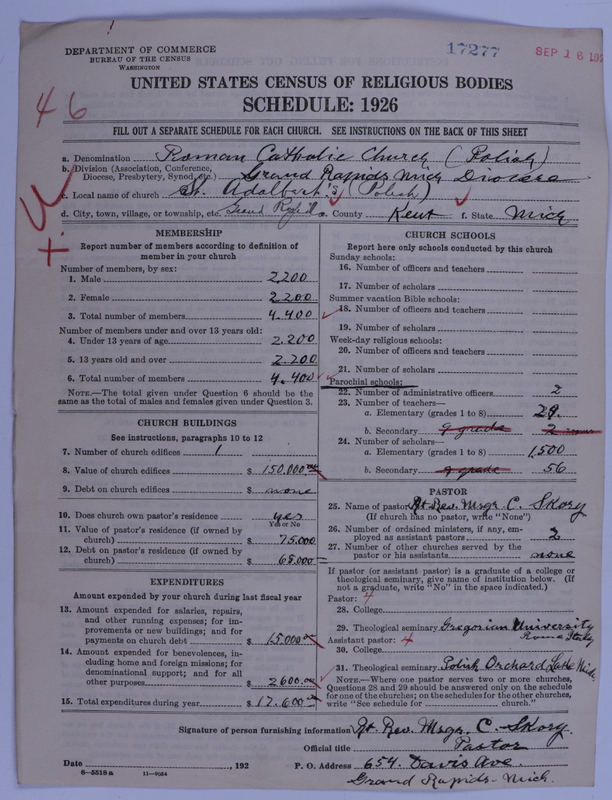 DEPARTMENT OF COMMERCE
BUREAU OF THE CENSUS
WASHINGTON
17277
SEP 16 192
UNITED STATES CENSUS OF RELIGIOUS BODIES
SCHEDULE: 1926
46
FILL OUT A SEPARATE SCHEDULE FOR EACH CHURCH. SEE INSTRUCTIONS ON THE BACK OF THIS SHEET
a. Denomination Roman Catholic Church (Polish)
b. Division (Association, Conference, Diocese, Presbytery, Synod, etc.) Grand Rapids Mich Diocese
c. Local name of church St. Adalbert's (Polish)
d. City, town, village, or township, etc. Grand Rapids e. County Kent f. State Mich
MEMBERSHIP
Report number of members according to definition of
member in your church
Number of members, by sex:
1. Male 2,200
2. Female 2200
3. Total number of members 4,400
Number of members under and over 13 years old:
4. Under 13 years of age 2,200
5. 13 years old and over 2,200
6. Total number of members 4,400
NOTE.—The total given under Question 6 should be the
same as the total of males and females given under Question 3.
CHURCH BUILDINGS
See instructions, paragraphs 10 to 12
7. Number of church edifices 1
8. Value of church edifices $ 150,000.00
9. Debt on church edifices $ none
10. Does church own pastor's residence yes
Yes or No
11. Value of pastor's residence (if owned by
church) $ 75,000
12. Debt on pastor's residence (if owned by
church) $ 65,000
EXPENDITURES
Amount expended by your church during last fiscal year
13. Amount expended for salaries, repairs,
and other running expenses; for im-
provements or new buildings; and for
payments on church debt $ 15,000
14. Amount expended for benevolences, in-
cluding home and foreign missions; for
denominational support; and for all
other purposes $ 2600
15. Total expenditures during year $ 17,600
CHURCH SCHOOLS
Report here only schools conducted by this church
Sunday schools:
16. Number of officers and teachers
17. Number of scholars
Summer vacation Bible schools:
18. Number of officers and teachers
19. Number of scholars
Week-day religious schools:
20. Number of officers and teachers
21. Number of scholars
Parochial schools:
22. Number of administrative officers 2
23. Number of teachers—
a. Elementary (grades 1 to 8) 29.
b. Secondary 9 grade 2
24. Number of scholars—
a. Elementary (grades 1 to 8) 1,500
b. Secondary 9 grade 56
PASTOR
25. Name of pastor Rt Rev. Msgr C. Skory
(If church has no pastor, write "None")
26. Number of ordained ministers, if any, em-
ployed as assistant pastors 2
27. Number of other churches served by the
pastor or his assistants none
If pastor (or assistant pastor) is a graduate of a college or
theological seminary, give name of institution below. (If
not a graduate, write "No" in the space indicated.)
Pastor: 4
28. College
29. Theological seminary Gregorian University
Rome Italy
Assistant pastor: 4
30. College
31. Theological seminary Polish Orchard Lake Mich.
NOTE.—Where one pastor serves two or more churches,
Questions 28 and 29 should be answered only on the schedule
for one of the churches; on the schedules for the other churches,
write "See schedule for church."
Signature of person furnishing information Rt. Rev. Msgr. C. Skory
Official title Pastor
Date , 192 P. O. Address 654 Davis Ave.
8—5518a 11—9064
Grand Rapids - Mich.